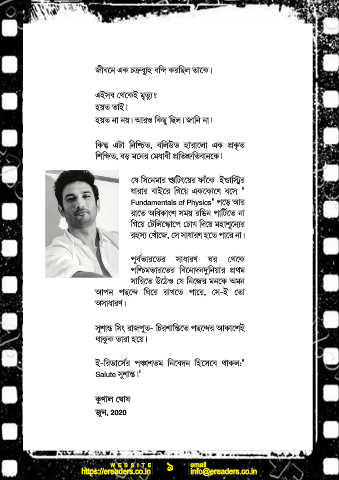 জীবনে এক চক্রব্যুহ বন্দি করছিল তাকে।
এইসব থেকেই মৃত্যু?
হয়ত তাই।
হয়ত না নয়। আরও কিছু ছিল। জানি না।
কিন্তু এটা নিশ্চিত, বলিউড হারালো এক প্রকৃত
শিক্ষিত, বড় মনের মেধাবী প্রতিশ্রুতিবানকে।
যে সিনেমার শুটিংয়ের ফাঁকে ইন্ডাস্ট্রির
ধারার বাইরে গিয়ে এককোণে বসে "
Fundamentals of Physics" পড়ে আর
রাতে অধিকাংশ সময় রঙিন পার্টিতে না
গিয়ে টেলিস্কোপে চোখ দিয়ে মহাশূন্যের
রহস্য খোঁজে, সে সাধারণ হতে পারে না।
পূর্বভারতের সাধারণ ঘর থেকে
পশ্চিমভারতের বিনোদনদুনিয়ার প্রথম
সারিতে উঠেও যে নিজের মনকে অমন
আপন পছন্দে ঘিরে রাখতে পারে, সে-ই তো
অসাধারণ।
সুশান্ত সিং রাজপুত- চিরশান্তিতে পছন্দের আকাশেই
থাকুক তারা হয়ে।
ই-রিডার্সের পঞ্চাশতম নিবেদন হিসেবে থাকল:"
Salute সুশান্ত।"
কুণাল ঘোষ
জুন, 2020
WEBSITE
https://ereaders.co.in
৯
email
info@ereaders.co.in